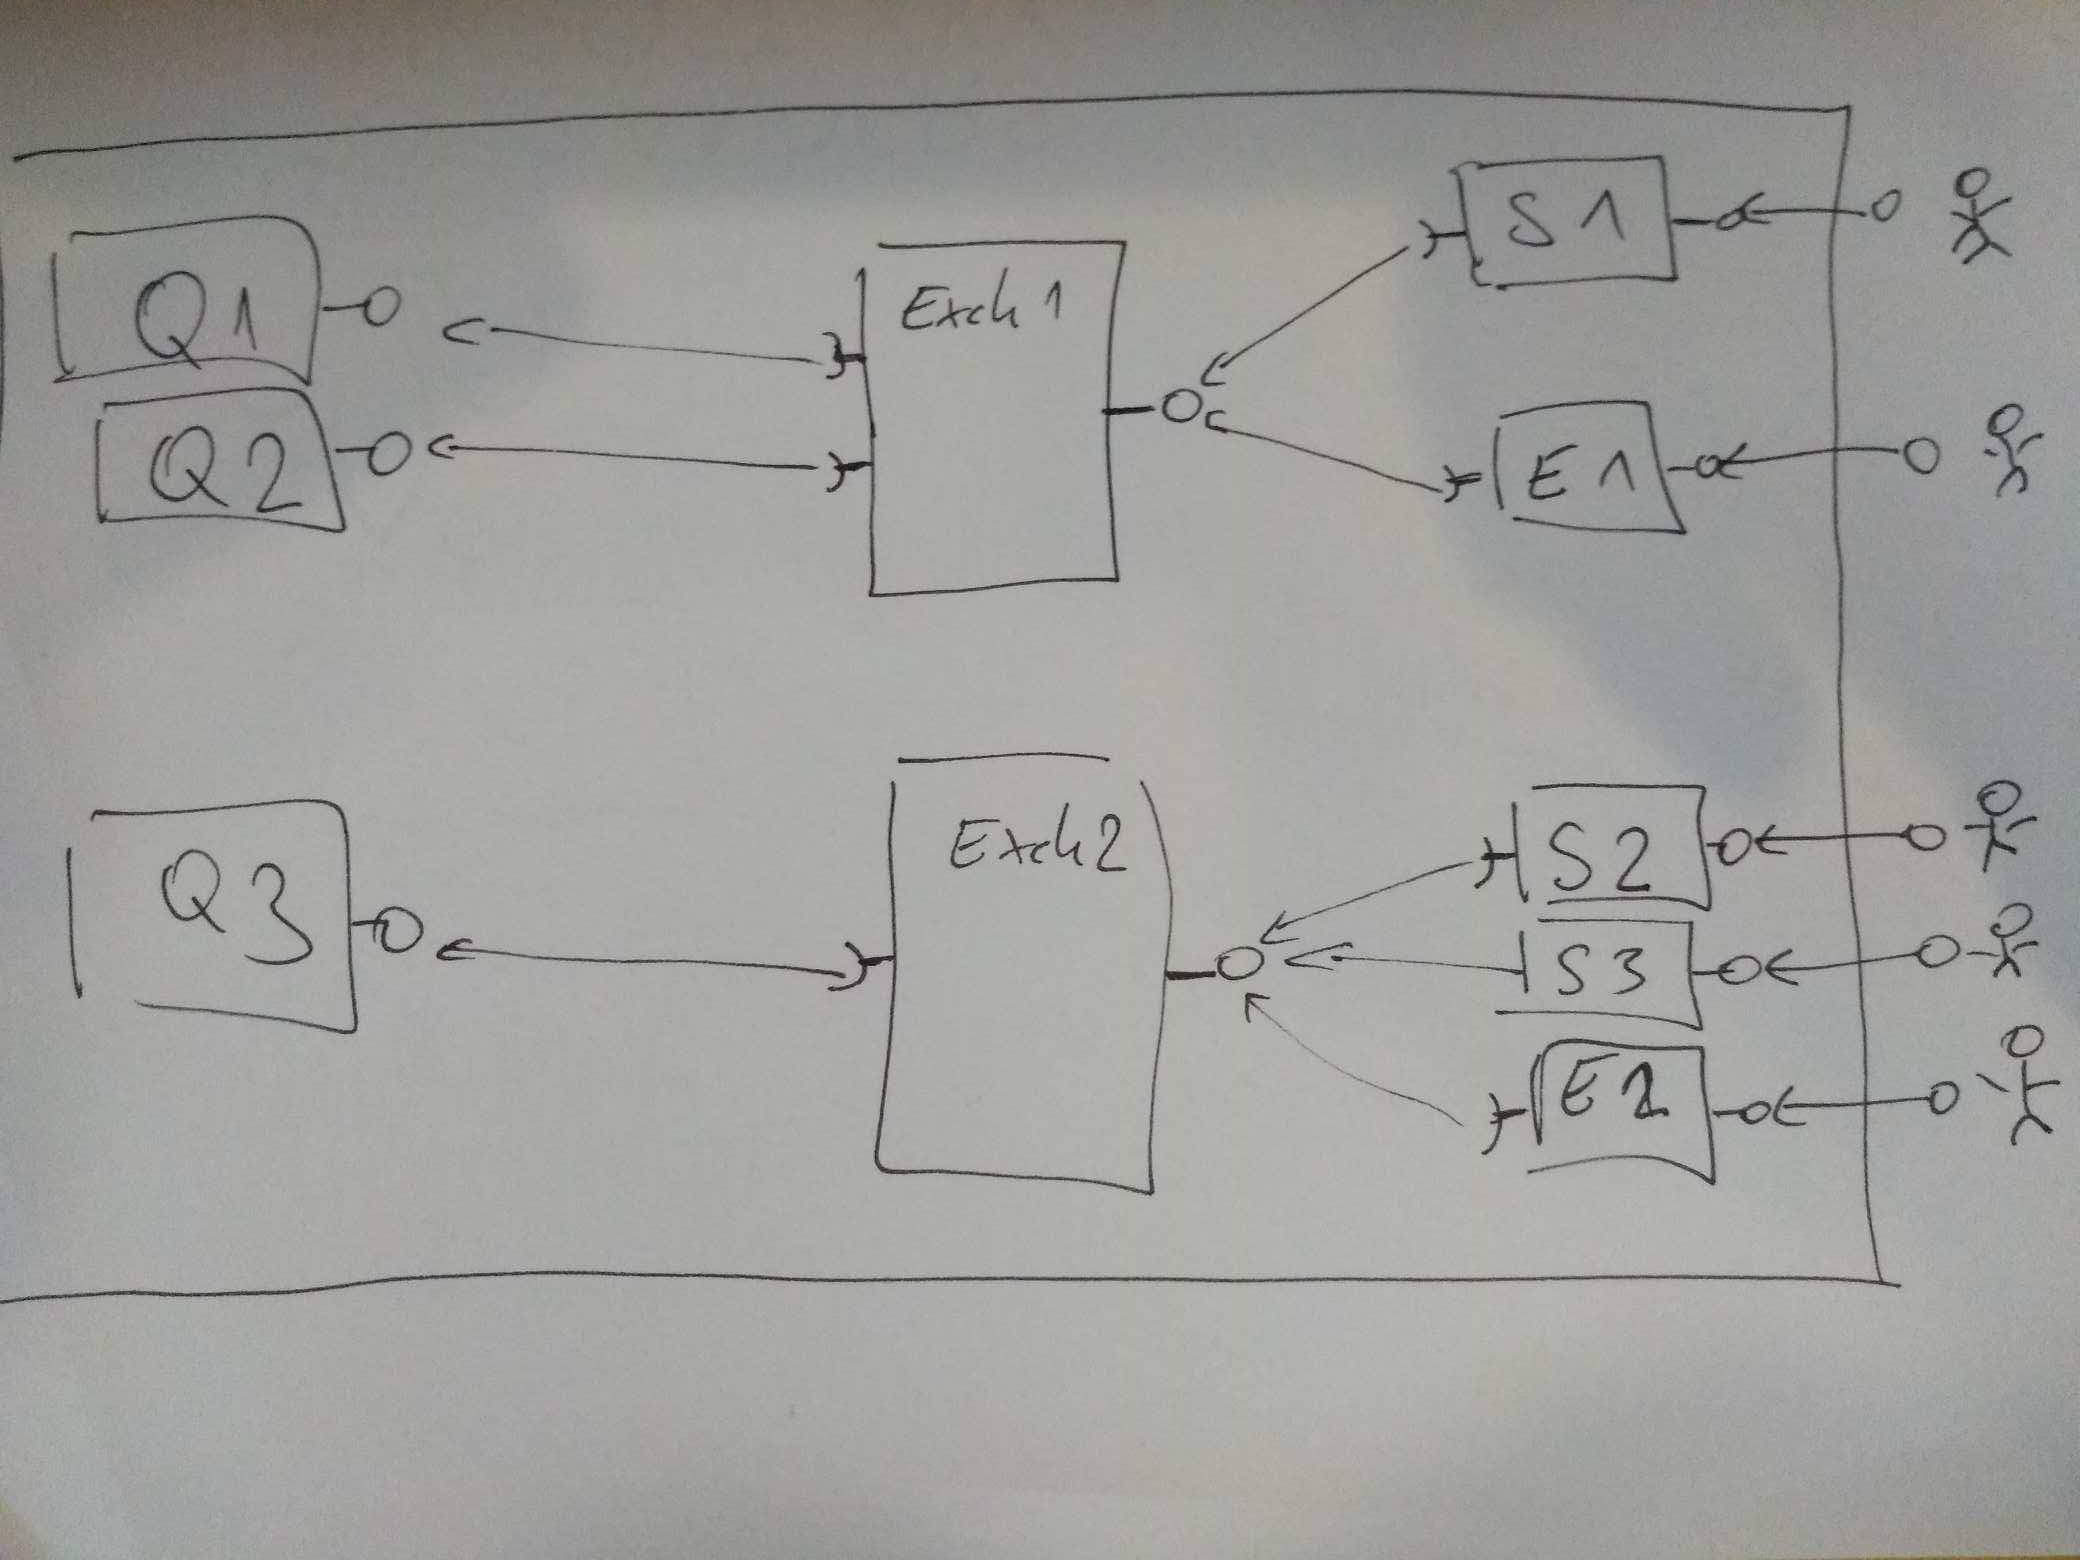 Q1
Q2
Exch 1
S1
E1
Q3
Exch2
S2
S3
E2